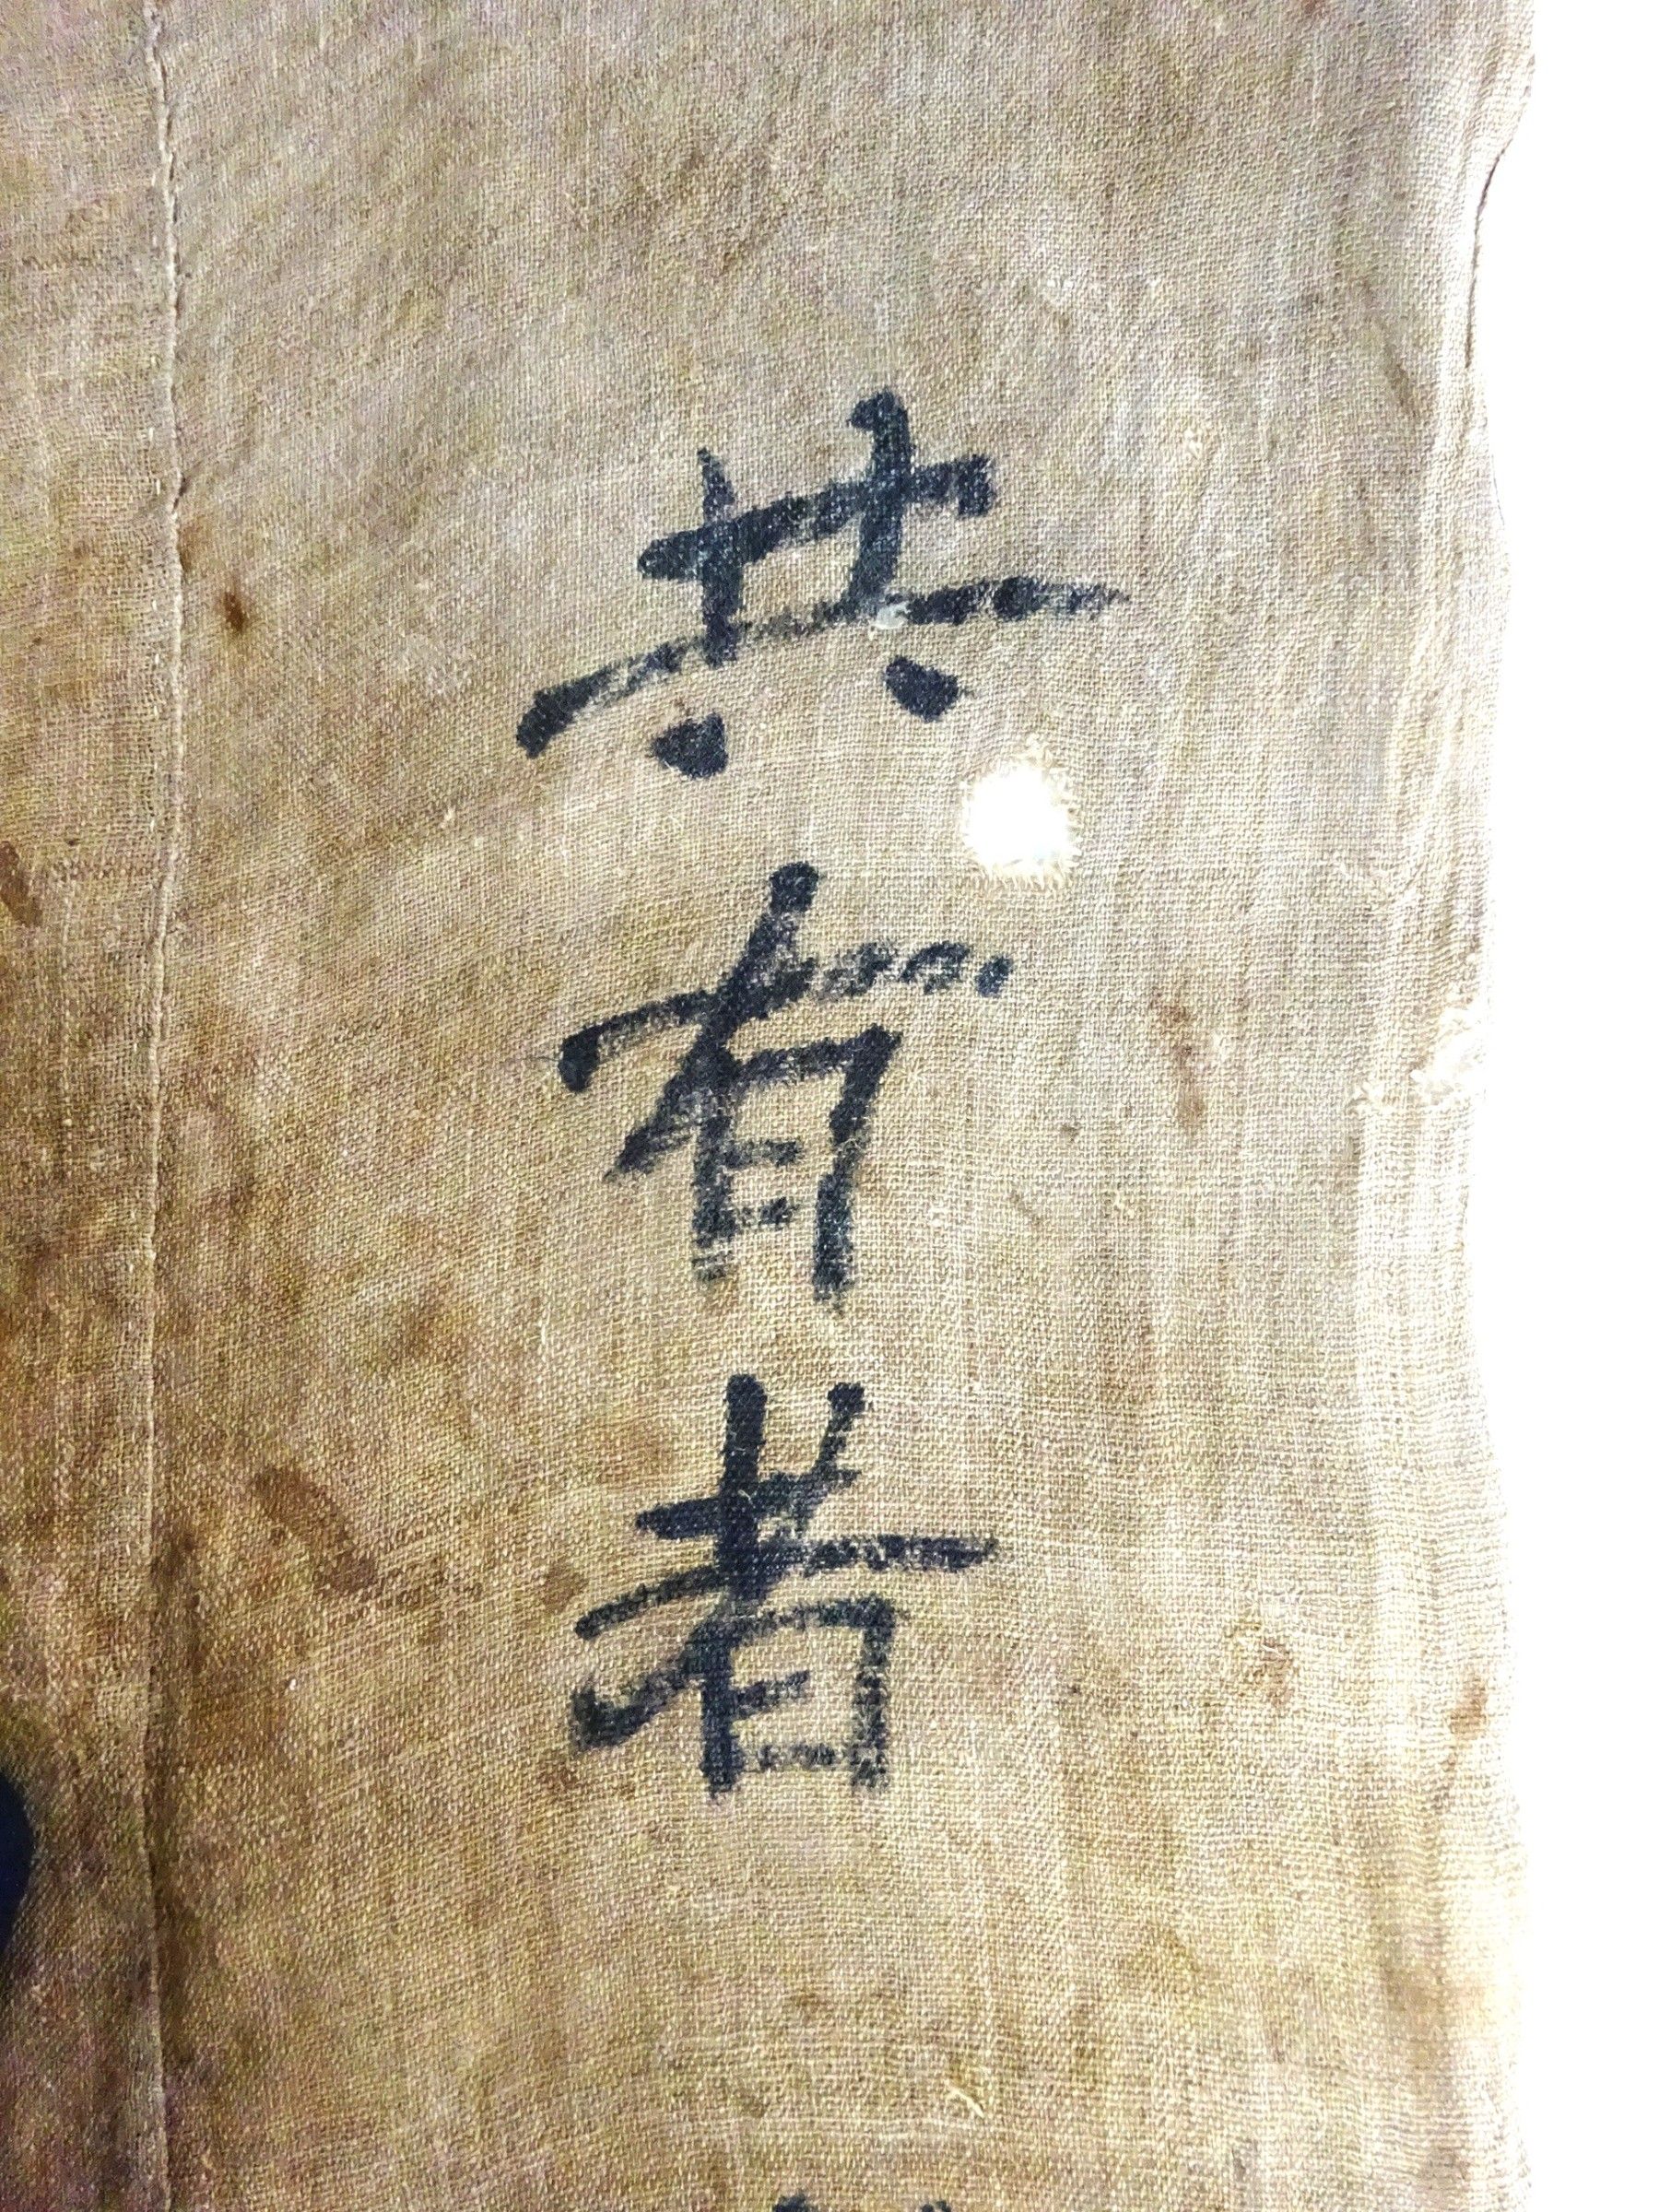 共有者